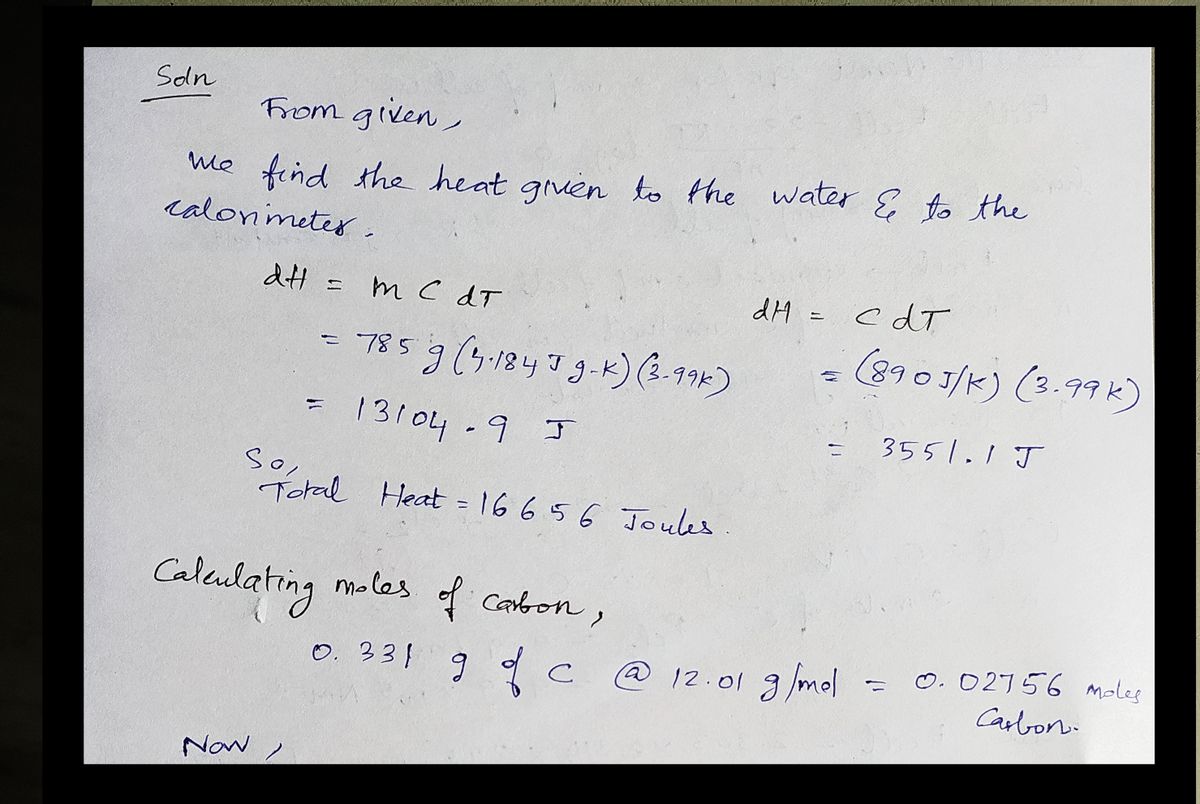 Soln
From given,
we find the heat given to the water & to the
calorimeter.
dH = m C dT
= 785 g (4.184 J g-K) (3.99K)
= 13104.9 J
dH = C dT
= (890 J/K) (3.99 K)
= 3551.1 J
So,
Total Heat = 16656 Joules.
Calculating moles of carbon,
0.331 g of C @ 12.01 g/mol = 0.02756 moles
Carbon.
Now,